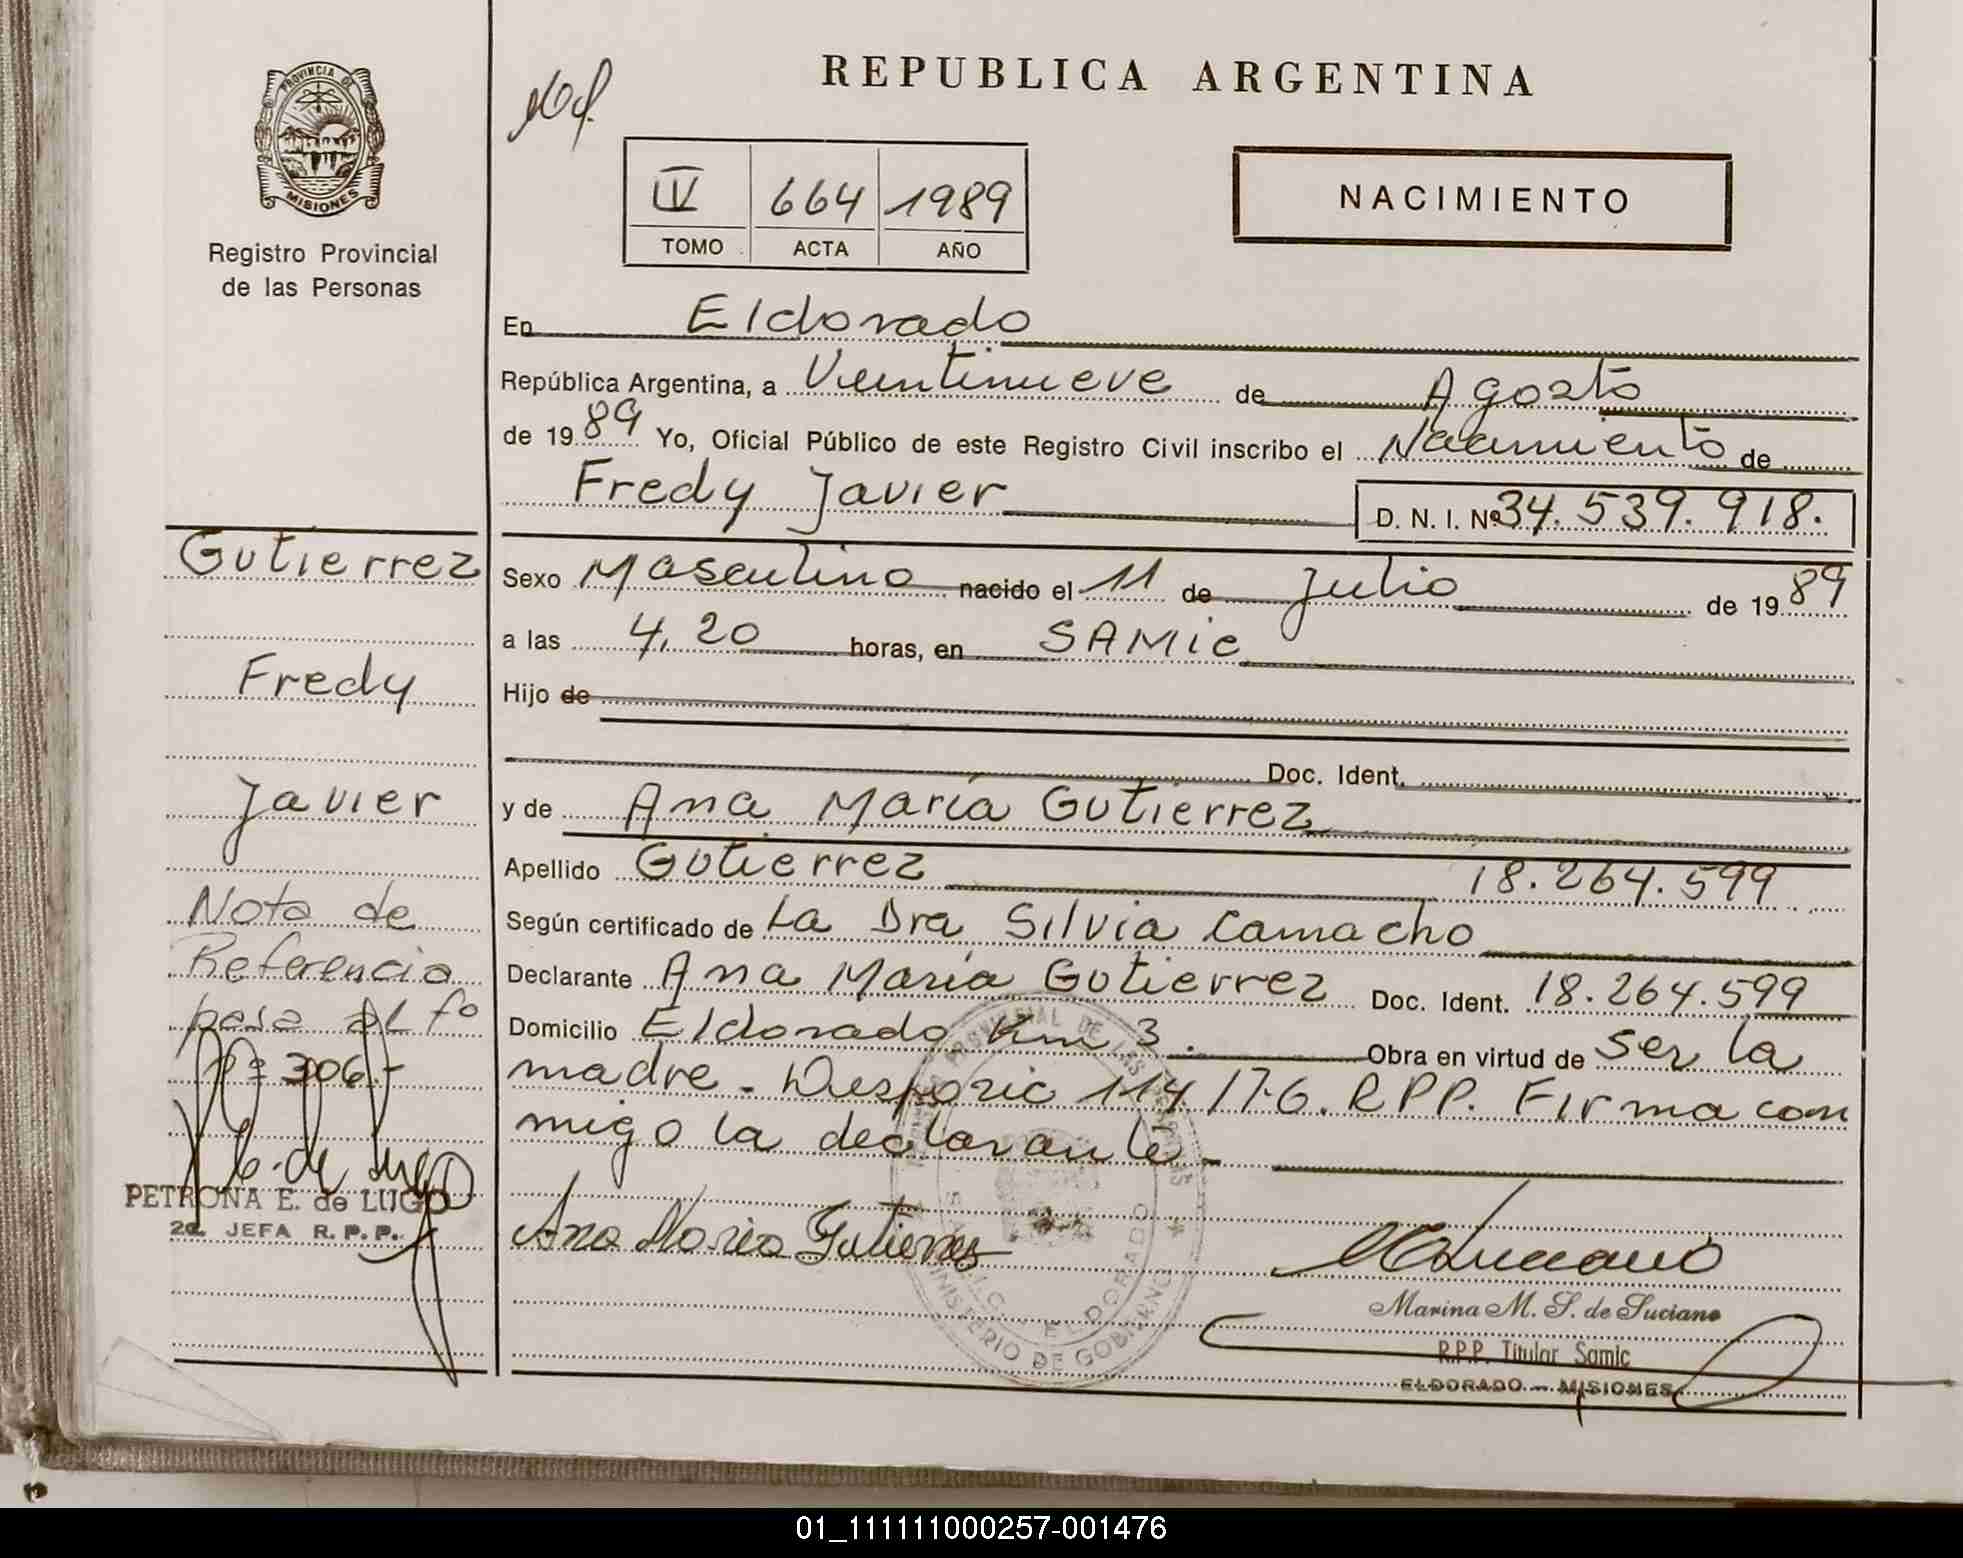 REPUBLICA ARGENTINA
PROVINCIA DE
MISIONES
Registro Provincial
de las Personas
IV 664 1989
TOMO ACTA AÑO
NACIMIENTO
En Eldorado
República Argentina, a Veintinueve de Agosto
de 1989 Yo, Oficial Público de este Registro Civil inscribo el Nacimiento de
Fredy Javier D. N. I. Nº 34.539.918.
Gutierrez
Fredy
Javier
Nota de
Referencia
pasa al fo
Nº 306.-
PETRONA E. de LUGO
2a. JEFA R. P. P.
Sexo Masculino nacido el 11 de Julio de 1989
a las 4,20 horas, en SAMic
Hijo de
Doc. Ident.
y de Ana María Gutierrez
Apellido Gutierrez 18.264.599
Según certificado de La Dra Silvia Camacho
Declarante Ana María Gutierrez Doc. Ident. 18.264.599
Domicilio Eldorado Km 3. Obra en virtud de ser la
madre. 114/76. RPP. Firma con
migo la declarante.-
Ana Maria Gutierres
MINISTERIO DE GOBIERNO
ELDORADO
Marina M. S. de Luciano
R.P.P. Titular Samic
ELDORADO - MISIONES
01_111111000257-001476